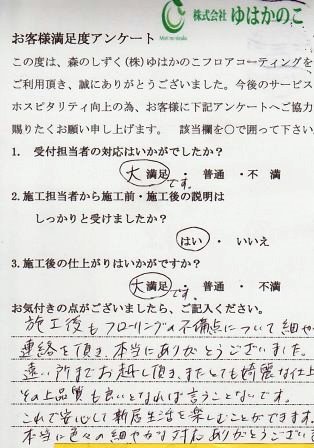 株式会社 ゆはかのこ
Mori no shizuku
お客様満足度アンケート
この度は、森のしずく(株)ゆはかのこフロアコーティングを
ご利用頂き、誠にありがとうございました。今後のサービス
ホスピタリティ向上の為、お客様に下記アンケートへご協力
賜りたくお願い申し上げます。 該当欄を〇で囲って下さい
1. 受付担当者の対応はいかがでしたか?
大満足です。・ 普通 ・不 満
2.施工担当者から施工前・施工後の説明は
しっかりと受けましたか?
はい ・ いいえ
3.施工後の仕上がりはいかがですか?
大満足です。・ 普通 ・ 不 満
お気付きの点がございましたら、ご記入ください。
施工後もフローリングの不備点について細や
連絡を頂き、本当にありがとうございました。
遠い所までお越し頂き、またしても綺麗な仕上
その上品質も良いとなれば言うことないです。
これで安心して新居生活を楽しむことができます。
本当に色々の細やかな対応ありがとうござい